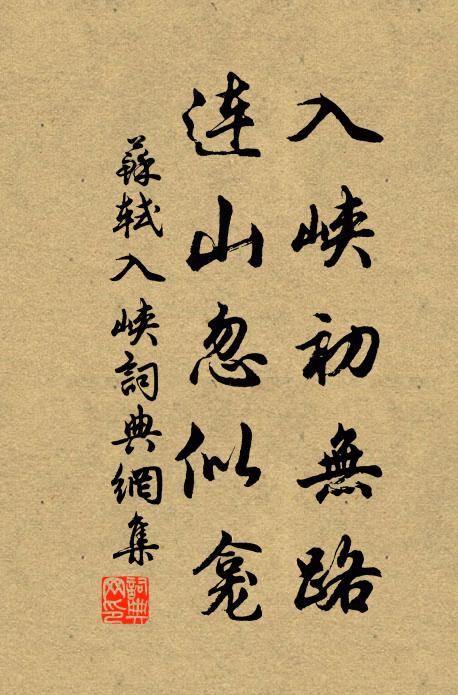 入峡初無路
连山忽似龛
蘇轼入峡詞典網集
詞典网印